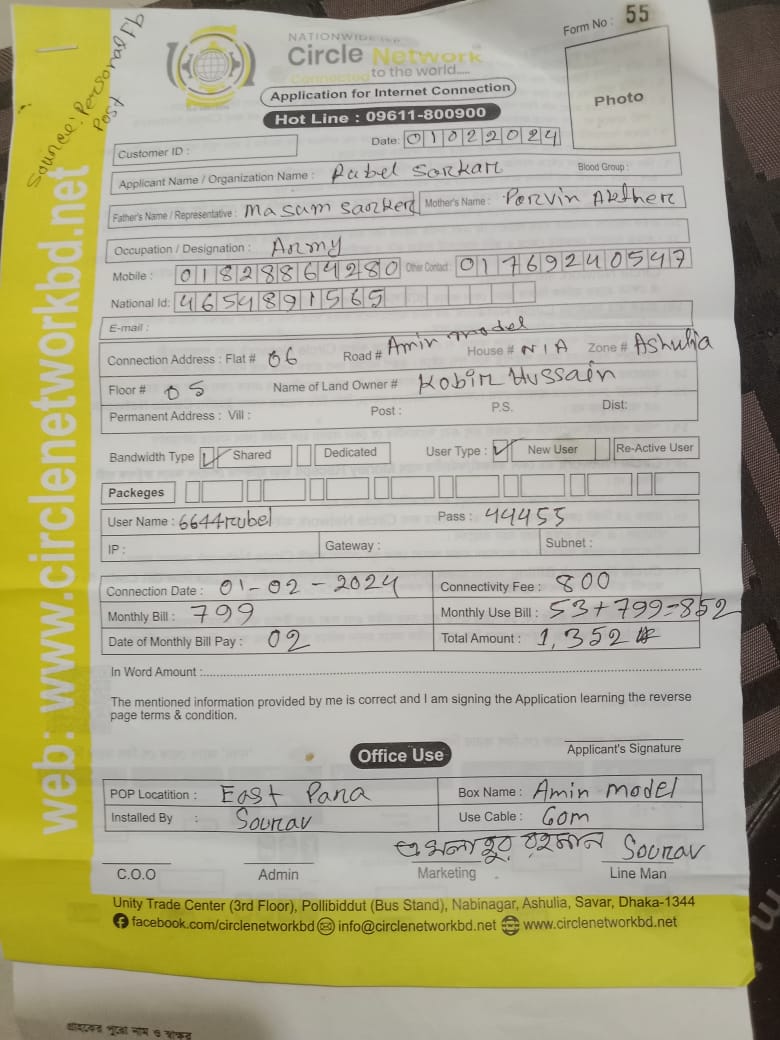 Form No : 55
Source: Personal Fb
Post
NATIONWIDE ISP
Circle Network
Connected to the world....
Application for Internet Connection
Hot Line : 09611-800900
Photo
Date: 01022024
Customer ID :
Applicant Name / Organization Name : Rubel Sarkar Blood Group :
Father's Name / Representative : Masum Sarker Mother's Name : Parvin Akther
Occupation / Designation : Army
Mobile : 01828864280 Other Contact 01769240547
National Id: 4654891565
E-mail :
Connection Address : Flat # 06 Road # Amin model House # N/A Zone # Ashulia
Floor # 05 Name of Land Owner # Kobir Hussain
Permanent Address : Vill : Post : P.S. Dist:
Bandwidth Type ✓ Shared Dedicated User Type : ✓ New User Re-Active User
Packeges
User Name : 6644rubel Pass : 44455
IP : Gateway : Subnet :
Connection Date : 01-02-2024 Connectivity Fee : 800
Monthly Bill : 799 Monthly Use Bill : 53+799=852
Date of Monthly Bill Pay : 02 Total Amount : 1,352
In Word Amount :
The mentioned information provided by me is correct and I am signing the Application learning the reverse
page terms & condition.
Applicant's Signature
Office Use
POP Locatition : East Para Box Name : Amin model
Installed By : Sourav Use Cable : 60m
রহমান Sourav
C.O.O Admin Marketing Line Man
Unity Trade Center (3rd Floor), Pollibiddut (Bus Stand), Nabinagar, Ashulia, Savar, Dhaka-1344
facebook.com/circlenetworkbd info@circlenetworkbd.net www.circlenetworkbd.net
web: www.circlenetworkbd.net
গ্রাহকের পুরো নাম ও স্বাক্ষর